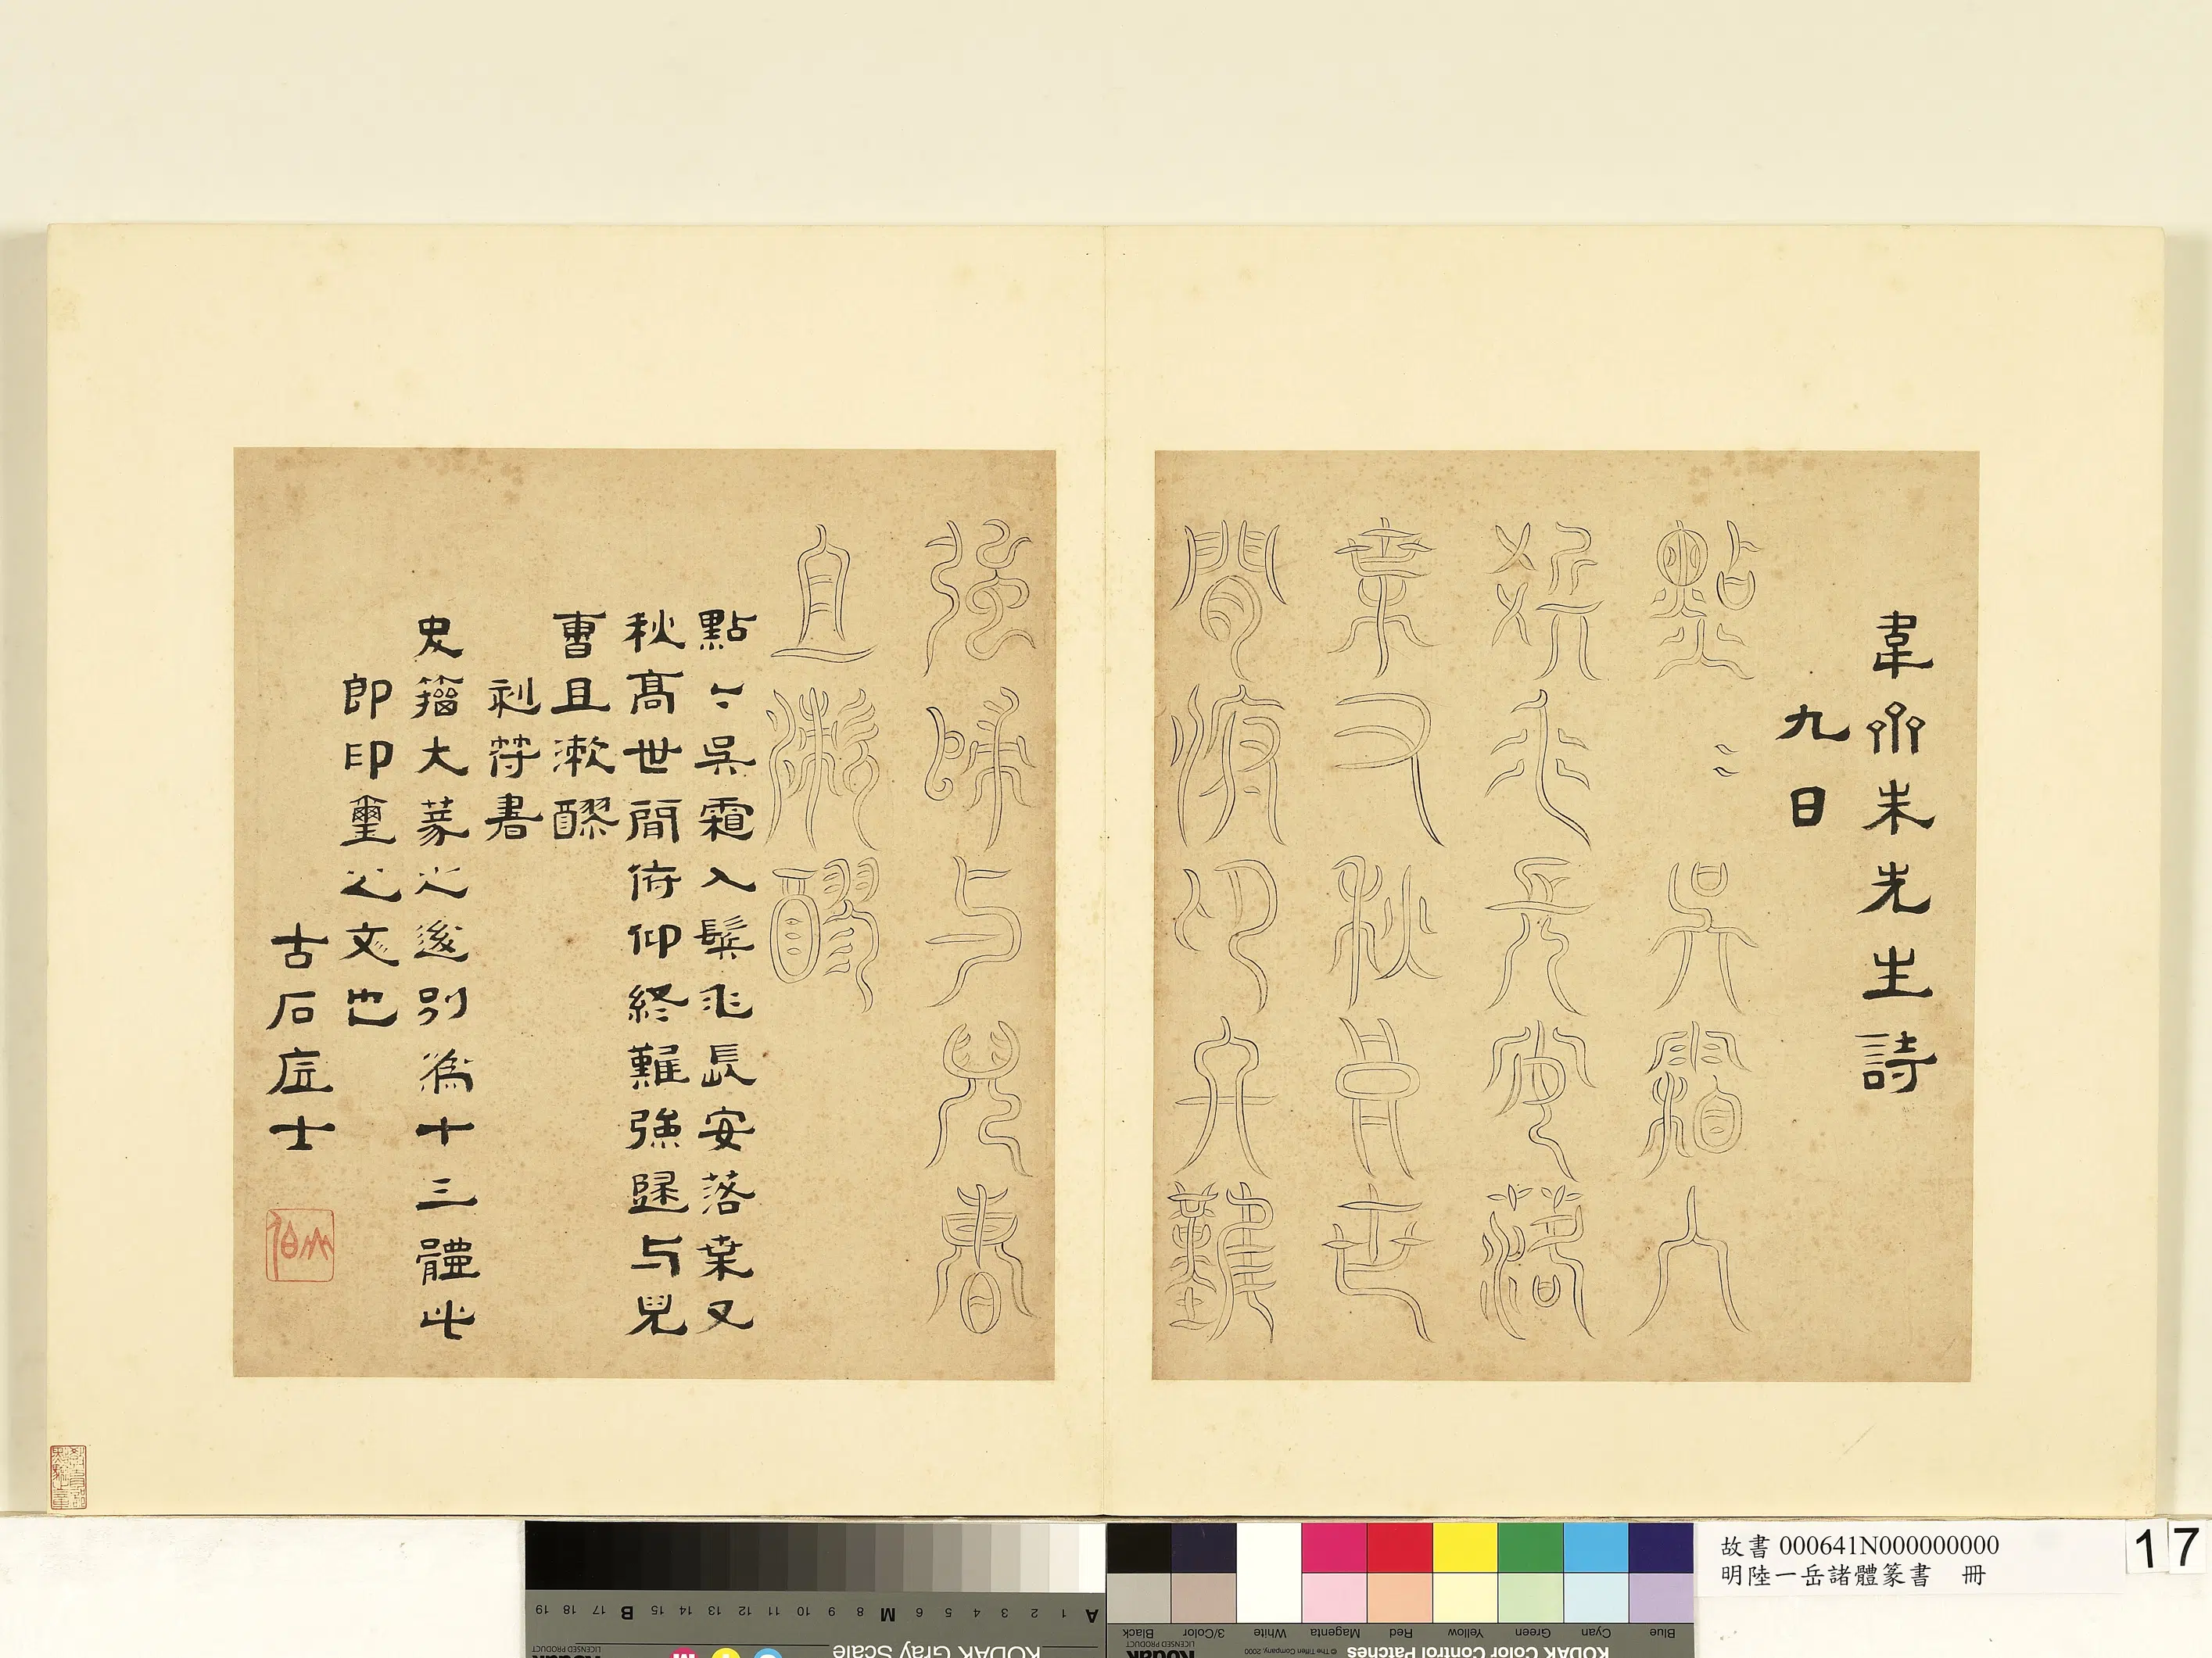 韋齋朱先生詩
九日
點〻吳霜入
鬢飛長安落
葉又秋高世
間俯仰終難
強歸与兒曹
且漱醪
點〻吳霜入鬢飛長安落葉又
秋高世間俯仰終難強歸与兒
曹且漱醪
刻符書
史籀大篆之後別為十三體此
即印璽之文也
古石居士
故書 000641N000000000
明陸一岳諸體篆書 冊
17
A 1 2 3 4 5 6 M 8 9 10 11 12 13 14 15 B 17 18 19
KODAK Gray Scale
Kodak
LICENSED PRODUCT
Blue Cyan Green Yellow Red Magenta White 3/Color Black
KODAK Color Control Patches
© The Tiffen Company, 2000
Kodak
LICENSED PRODUCT